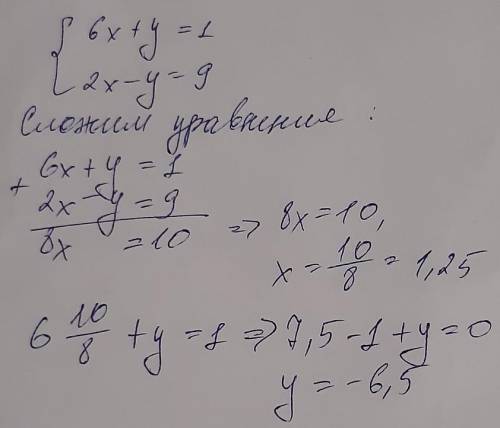 { 6x+y=1
2x-y=9
Сложим уравнения :
+ 6x+y=1
2x-y=9
8x =10 => 8x=10,
x= 10/8 = 1,25
6 10/8 +y=1 => 7,5-1+y=0
y=-6,5